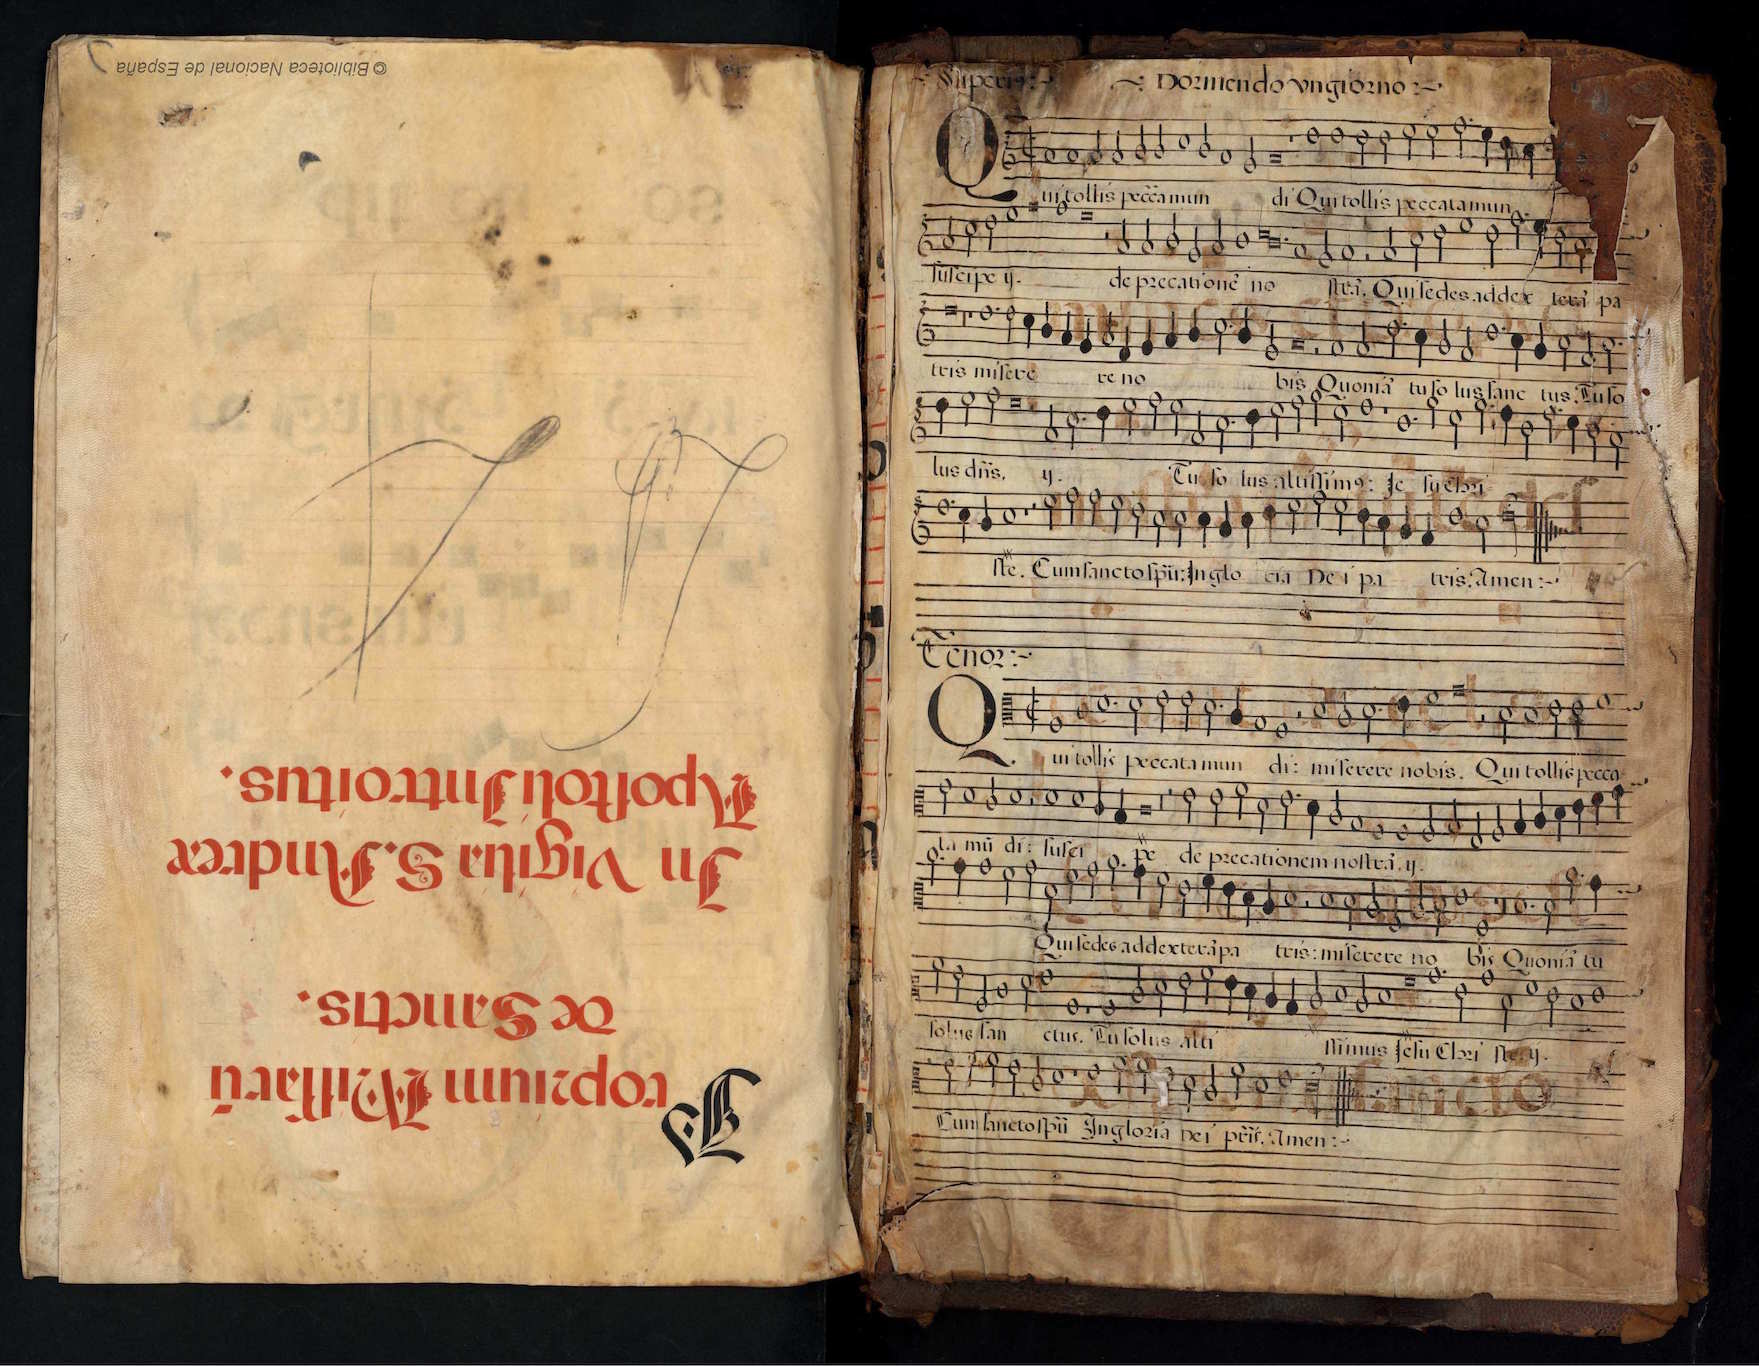 © Biblioteca Nacional de España
Apostoli Introitus.
In Vigilia S. Andreæ
de Sanctis.
Proprium Missarũ
Superi9:~
~: Dormendo vngiorno :~
Qui tollis pecc̃a mun di Qui tollis peccata mun
suscipe ij. deprecationẽ no strã. Qui sedes ad dex terã pa
tris misere re no bis Quoniã tu so lus sanc tus. Tu so
lus dñs. ij. Tu so lus altissim9: Je su chri
ste. Cum sancto spũ: In glo ria De i pa tris. Amen:~
Tenor:~
Qui tollis peccata mun di: miserere nobis. Qui tollis pecca
ta mũ di: susci pe deprecationem nostrã. ij.
Qui sedes ad dexterã pa tris: miserere no bis Quoniã tu
solus san ctus. Tu solus alti ssimus Jesu Chri ste. ij.
Cum sancto spũ In gloria Dei pr̃is. Amen:~